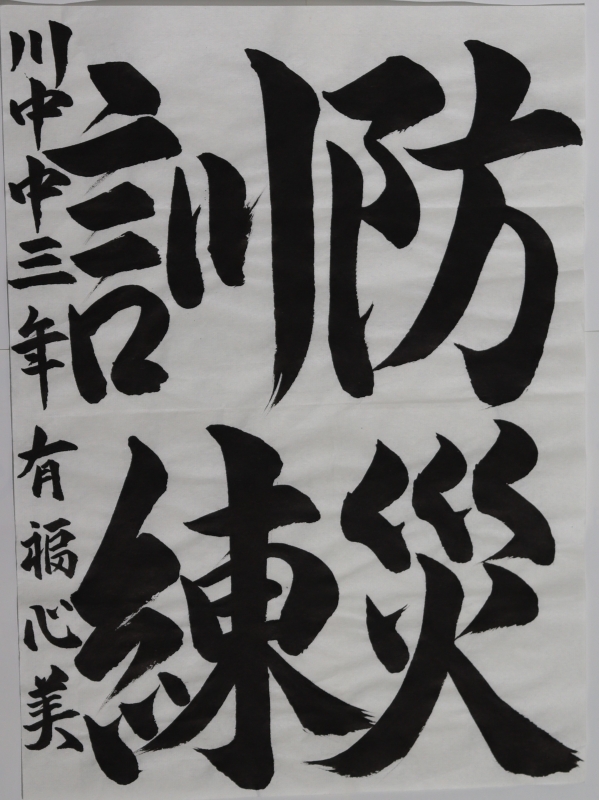 防災
訓練
川中中三年 有福心美